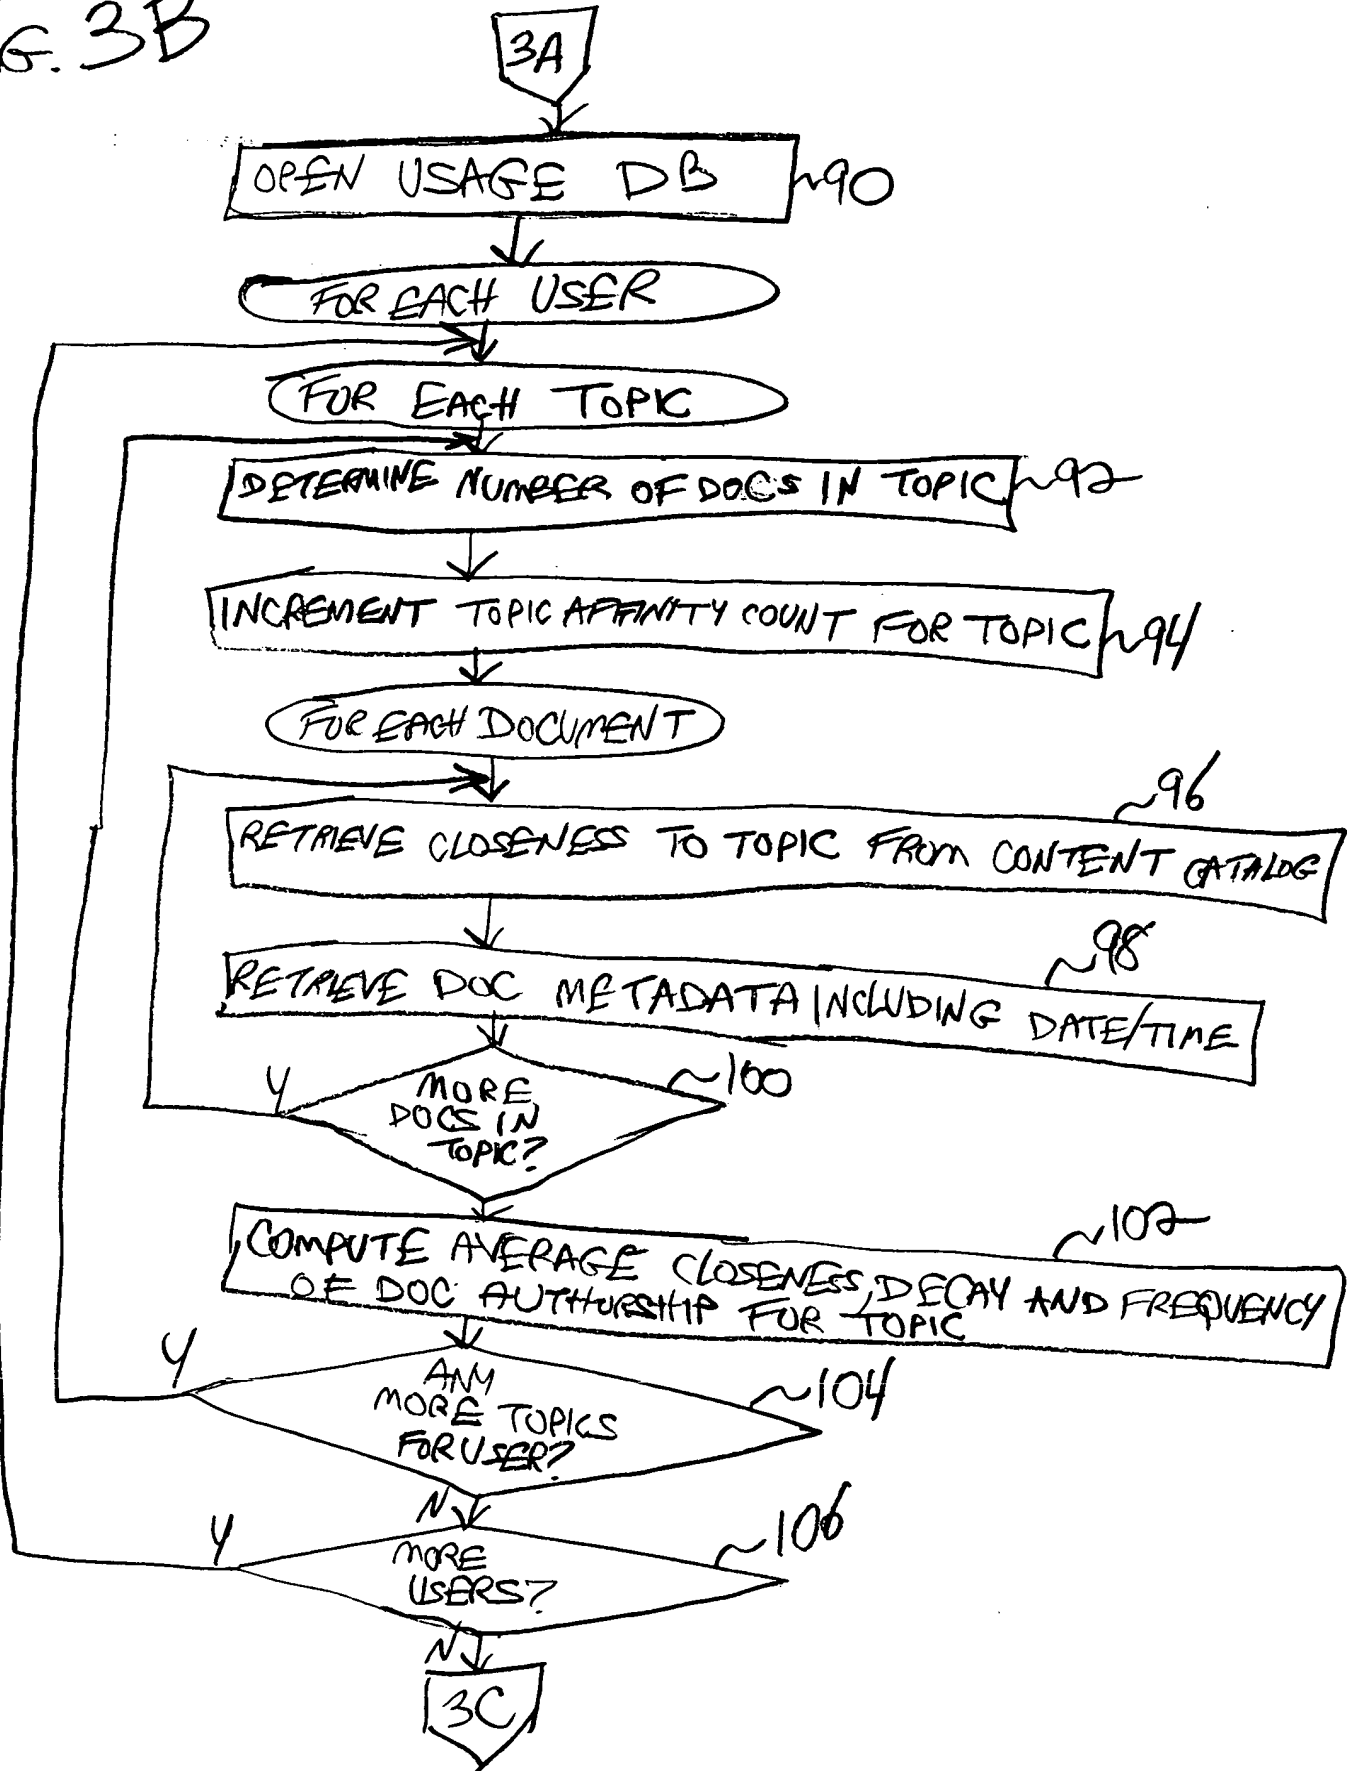 G. 3B
3A
OPEN USAGE DB
90
FOR EACH USER
FOR EACH TOPIC
DETERMINE NUMBER OF DOCS IN TOPIC
92
INCREMENT TOPIC AFFINITY COUNT FOR TOPIC
94
FOR EACH DOCUMENT
96
RETRIEVE CLOSENESS TO TOPIC FROM CONTENT CATALOG
98
RETRIEVE DOC METADATA INCLUDING DATE/TIME
100
Y
MORE
DOCS IN
TOPIC?
102
COMPUTE AVERAGE CLOSENESS, DECAY AND FREQUENCY
OF DOC AUTHORSHIP FOR TOPIC
Y
ANY
MORE TOPICS
FOR USER?
104
N
Y
MORE
USERS?
106
N
3C